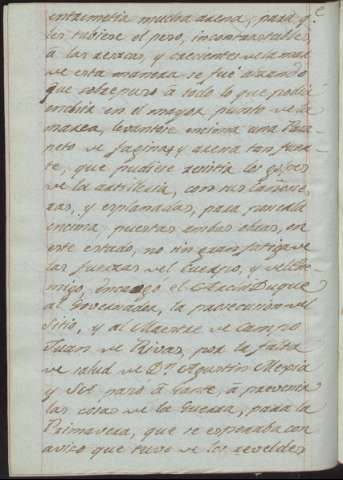 entremetia mucha arena, para q.^e
les tubiese el peso, incontrastables
á las aguas, y crecientes de la mar
de esta manera se fué alzando
que sobrepuso á todo lo que podia
cubrir en el mayor punto de la
marea, levantose encima una Para
peto de faginas, y arena tan fuer
te, que pudiese resistir los golpes
de la artilleria, con sus cañone
ras, y esplanadas, para ponerla
encima; puestas ambas obras, en
este estado, no sin gran fatiga de
las fuerzas del Cuerpo, y del Ene
migo, encargo el Archi Duque
al Governador, la prosecucion del
Sitio, y al Maestre de Campo
Juan de Rivas, por la falta
de salud de D.^n Agustin Mexia
y Sel pasó á Gante, á prevenir
las cosas de la Guerra, para la
Primavera, que se esperaba con
aviso que tuvo de los rebeldes